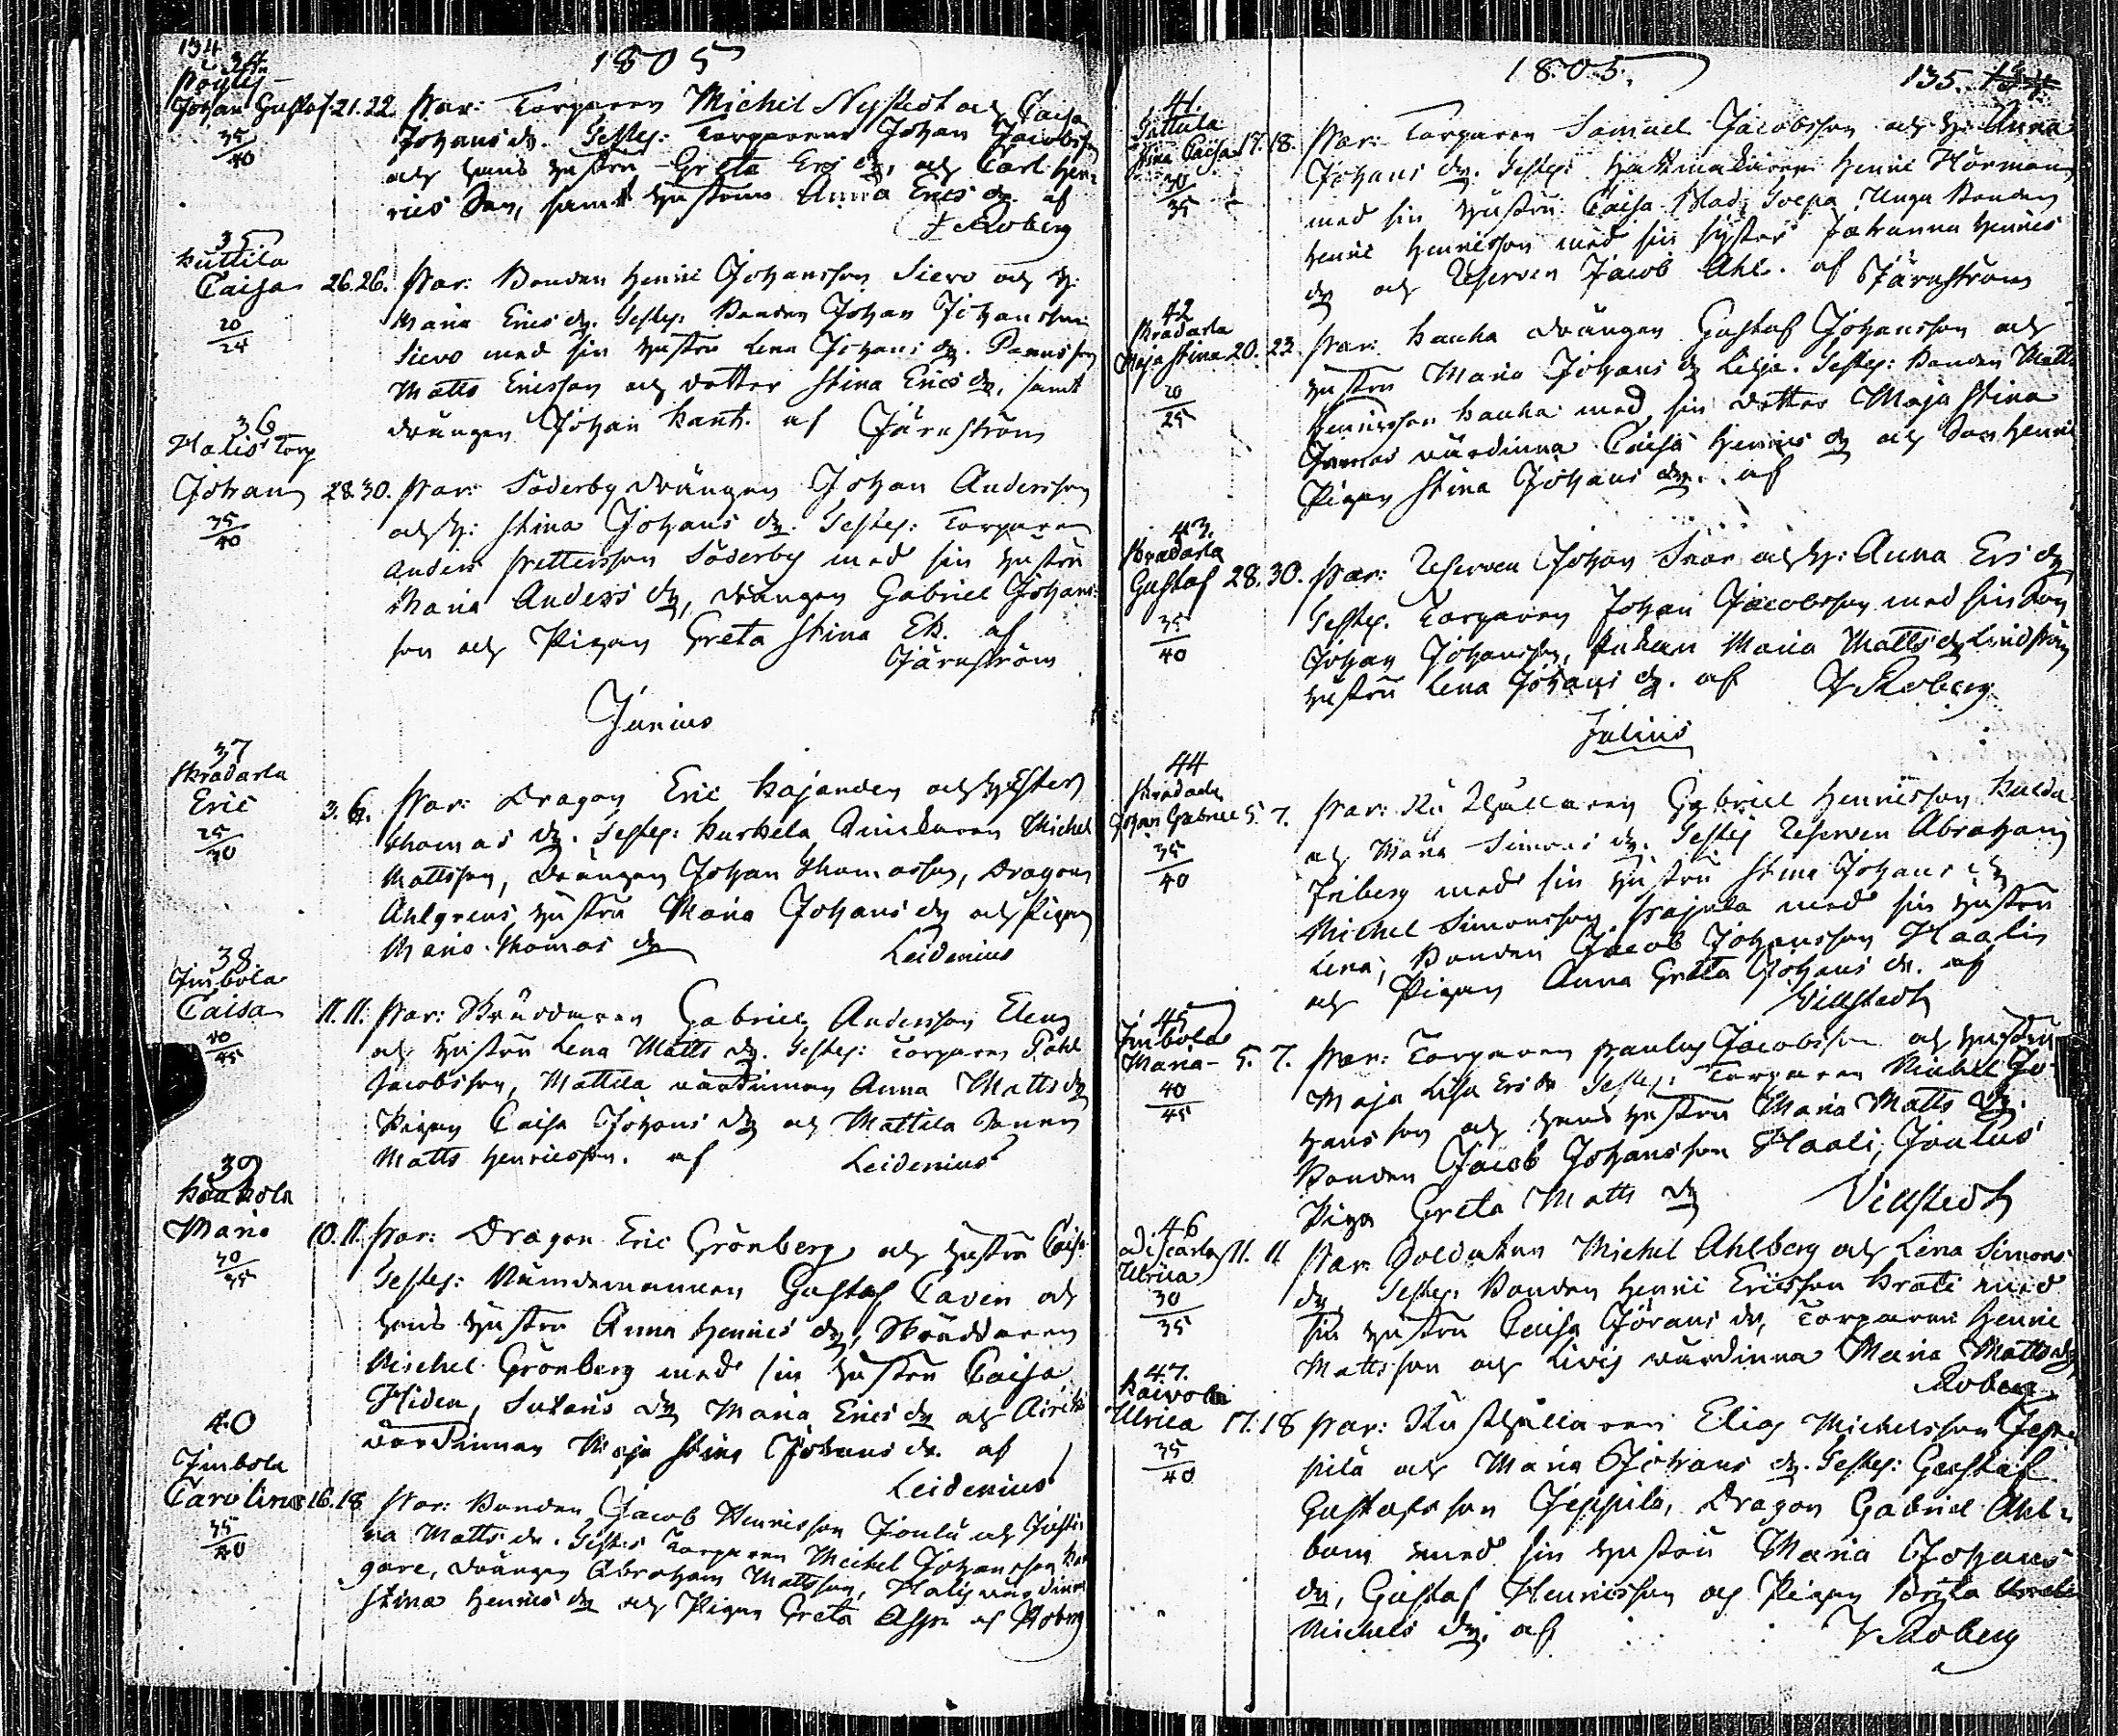 134
1805
34.
Pöytis
Johan Gustaf. 21. 22. Par: Torparen Michel Nystedt och Caisa
35/40
Johans dr. Testes: Torparens Johan Jacobss
och hans hustru Greta Ers dr, och Carl Hen=
rics Son, samt hustrun Anna Erics dr. af
Roberg
35
Kuttila
Caisa 26. 26. Par: Bonden Henric Johansson Sievo och h:
20/25
Maria Erics dr. Testes: Bonden Johan Johansson
Sievo med sin hustru Lena Johans dr.
Matts Ericsson och dotter Stina Erics dr, samt
drängen Johan af Järnström
36
Halis Torp
Johan 28. 30. Par: Söderby drängen Johan Andersson
35/40
och h: Stina Johans dr. Testes: Torparen
Anders Pettersson Söderby med sin hustru
Maria Anders dr, drängen Gabriel Johans=
son och Pigan Greta Stina Ek. af
Järnström
Junius
37
Skradarla
Eric 3. 6. Par: Dragon Eric Kajander och h: Ester
25/30
Thomas dr. Testes: Kurkela Michel
Mattsson, drängen Johan Thomasson, Dragon
Ahlgrens hustru Maria Johans dr och Pigan
Maria Thomas dr Leidenius
38
Jmbola
Caisa 11. 11. Par: Skräddaren Gabriel Andersson Eleng
40/45
och hustru Lena Matts dr. Testes: Torparen Påhl
Jacobsson, Mattila värdinnan Anna Matts dr
Pigan Caisa Johans dr och Mattila Sonen
Matts Henricsson. af Leidenius
39
Kaukola
Maria 10. 11. Par: Dragon Eric Grönberg och hustru Caisa
30/35
Testes: Nämdemannen Gustaf Caven och
hans hustru Anna Henrics dr, Skräddaren
Michel Grönberg med sin hustru Caisa
Hiden, dr Maria Erics dr och
värdinnan Maja Stina Johans dr. af
Leidenius
40
Jmbola
Carolina 16. 18. Par: Bonden Jacob Henricsson Joulu och Justi=
35/40
na Matts dr. Testes Torparen Michel Johansson
gare, drängen Abraham Mattsson, Halis värdinna
Stina Henrics dr och Pigan Greta af Roberg
1805.
135.
41.
Tattula
Stina Caisa 17. 18. Par: Torparen Samuel Jacobsson och h: Anna
30/35
Johans dr. Testes: Hattmakaren Henric Hörman
med sin hustru Caisa Unga Bonden
Henric Henricsson med sin syster Johanna Henrics
dr och Reserven Jacob Ahl. af Järnström
42
Skradarla
Maja Stina 20. 23. Par: Kauka drängen Gustaf Johansson och
20/25
hustru Maria Johans dr Lilja. Testes: Bonden Matts
Henricsson Kauka med sin dotter Maja Stina
värdinna Caisa Henrics dr och Son Henric
Pigan Stina Johans dr. af
43.
Skradarla
Gustaf 28. 30. Par: Reserven Johan Snär och h: Anna Ers dr
35/40
Testes. Torparen Johan Jacobsson med sin Son
Johan Johansson, Enkan Maria Matts dr Lindström
hustru Lena Johans dr. af Roberg
Julius
44
Skradarla
Johan Gabriel 5. 7. Par: Gabriel Henricsson
35/40
och Maria Simons dr. Testes Reserven Abraham
Friberg med sin hustru Stina Johans dr
Michel Simonsson med sin hustru
Lena, Bonden Jacob Johansson Haali
och Pigan Anna Greta Johans dr. af
Villstedt
45
Jmbola
Maria 5. 7. Par: Torparen Paulus Jacobsson och hustru
40/45
Maja Lisa Ers dr Testes: Torparen Michel Jo=
hansson och hans hustru Maria Matts dr.
Bonden Jacob Johansson Haali, Joulus
Piga Greta Matts dr Villstedt
46
Ulrica 11. 11 Par: Soldaten Michel Ahlberg och Lena Simons
30/35
dr, Testes: Bonden Henric Ericsson Krati med
sin hustru Caisa Görans dr, Torparen Henric
Mattsson och värdinna Maria Matts dr
Roberg
47.
Kaivola
Ulrica 17. 18 Par: Rusthållaren Elias Michelsson Jep=
35/40
pila och Maria Johans dr. Testes: Gustaf
Gustafsson Jeppila, Dragon Gabriel Ahl=
bom med sin hustru Maria Johans
dr, Gustaf Henricsson och Pigan Brita
Michels dr. af Roberg